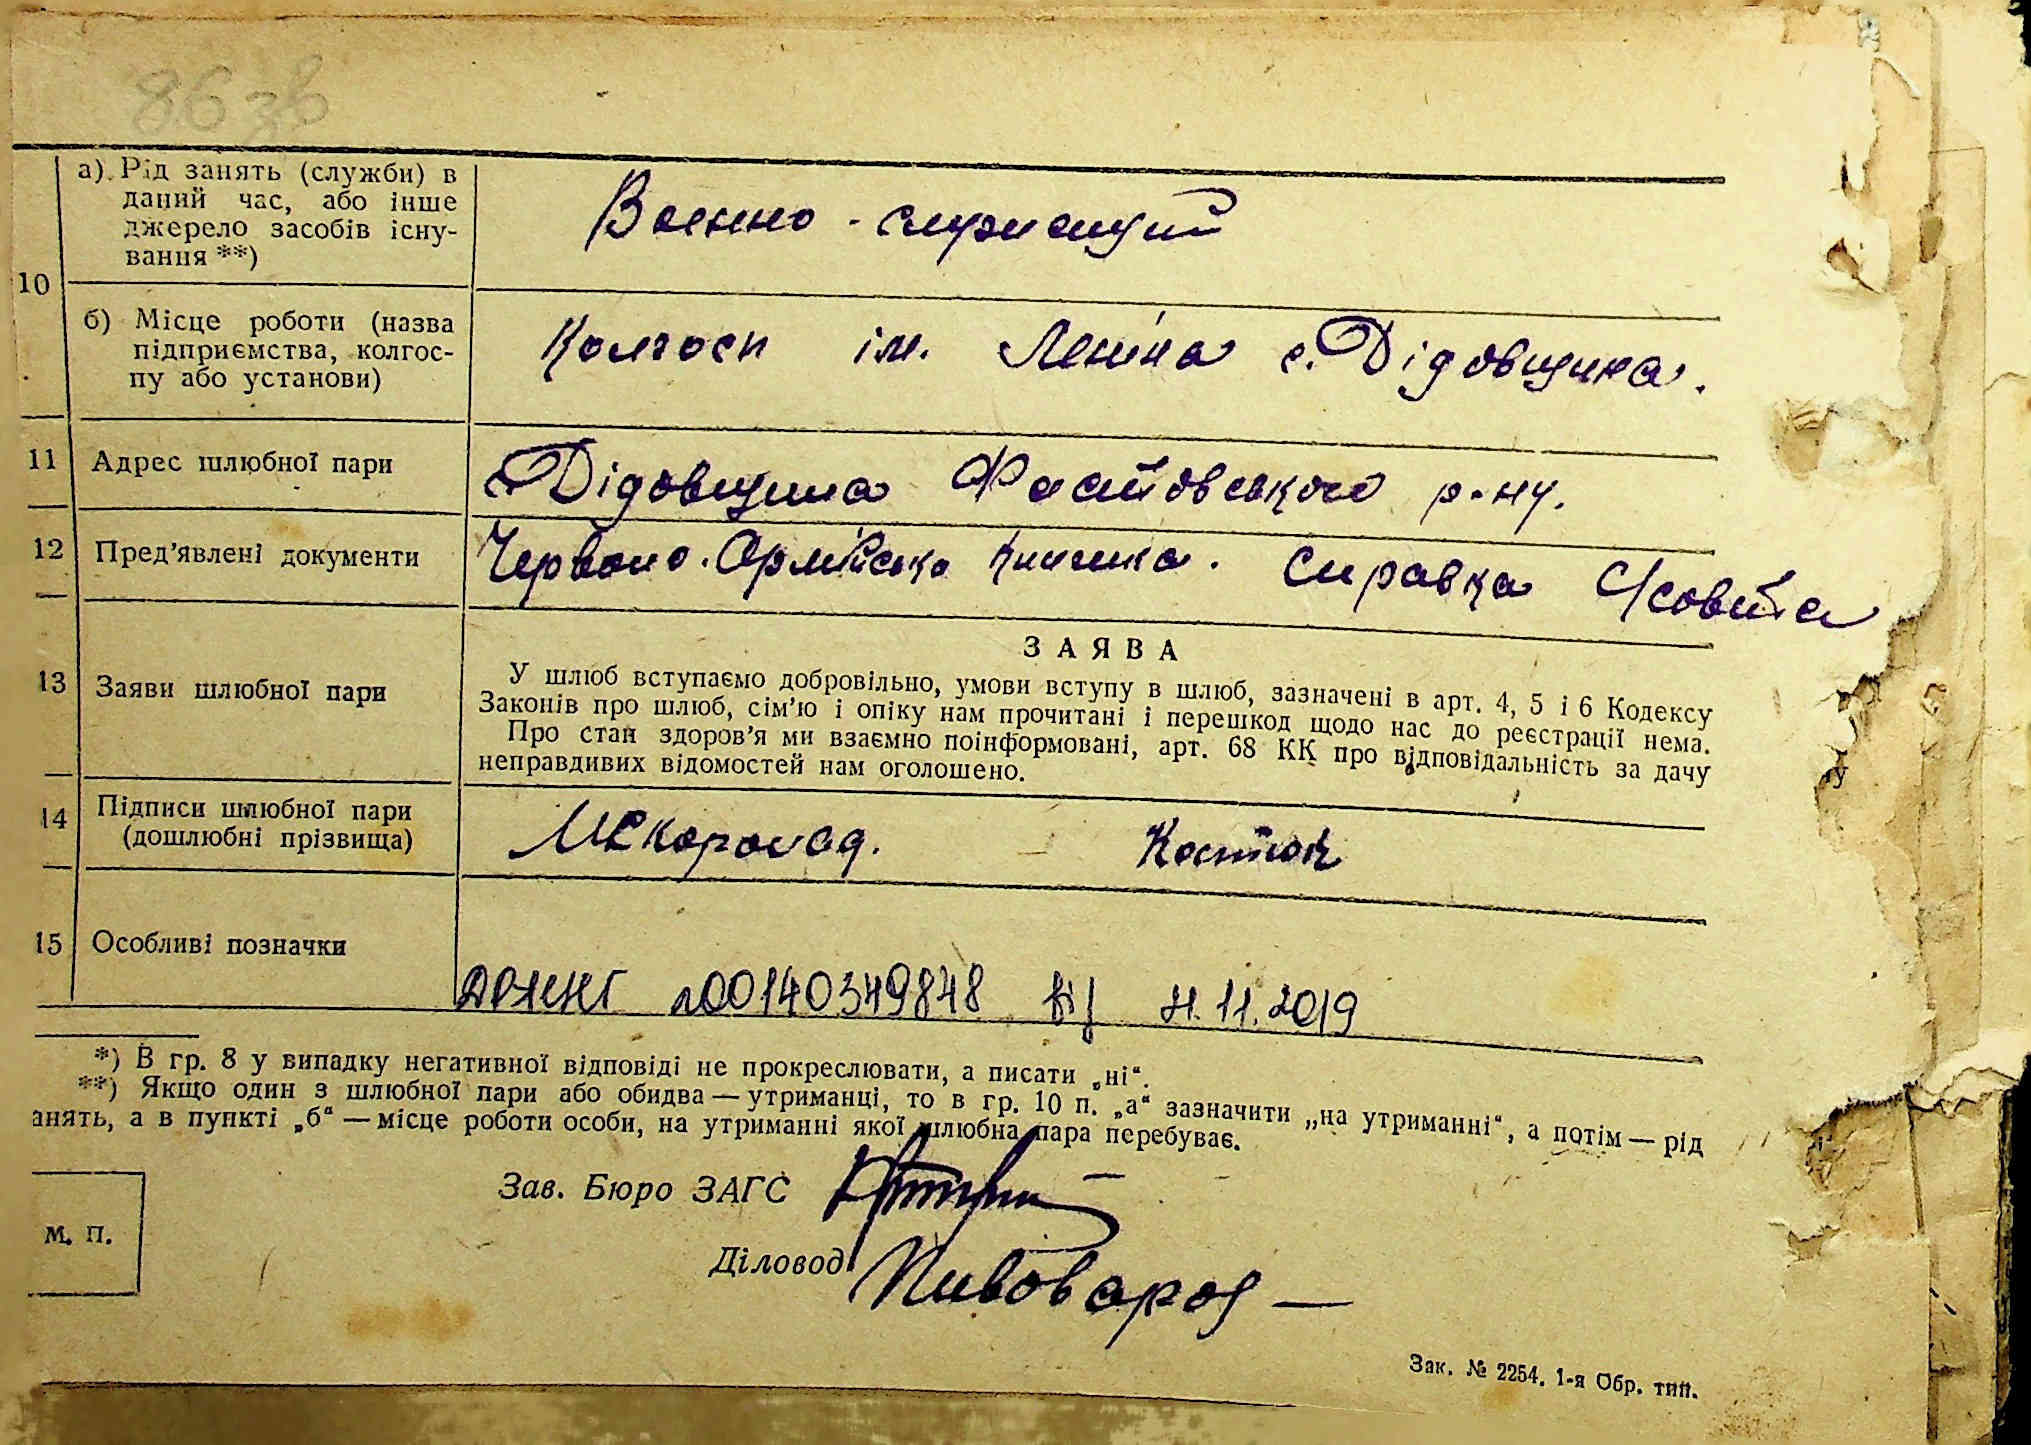 86 зв
а) Рід занять (служби) в
даний час, або інше
джерело засобів існу-
вання **)
Военно-служащий
10
б) Місце роботи (назва
підприємства, колгос-
пу або установи)
Колгосп ім. Леніна с. Дідовщина.
11 Адрес шлюбної пари
Дідовщина Фастовського р-ну.
12 Пред’явлені документи
Червоно-Армійська книжка. справка
13 Заяви шлюбної пари
ЗАЯВА
У шлюб вступаємо добровільно, умови вступу в шлюб, зазначені в арт. 4, 5 і 6 Кодексу
Законів про шлюб, сім’ю і опіку нам прочитані і перешкод щодо нас до реєстрації нема.
Про стан здоров’я ми взаємно поінформовані, арт. 68 КК про відповідальність за дачу
неправдивих відомостей нам оголошено.
14 Підписи шлюбної пари
(дошлюбні прізвища)
Костюк
15 Особливі позначки
00140349848 від 11.2019
*) В гр. 8 у випадку негативної відповіді не прокреслювати, а писати „ні“.
**) Якщо один з шлюбної пари або обидва — утриманці, то в гр. 10 п. „а“ зазначити „на утриманні“, а потім — рід
анять, а в пункті „б“ — місце роботи особи, на утриманні якої шлюбна пара перебуває.
Зав. Бюро ЗАГС
Діловод Пивовар
м. п.
Зак. № 2254. 1-я Обр. тип.